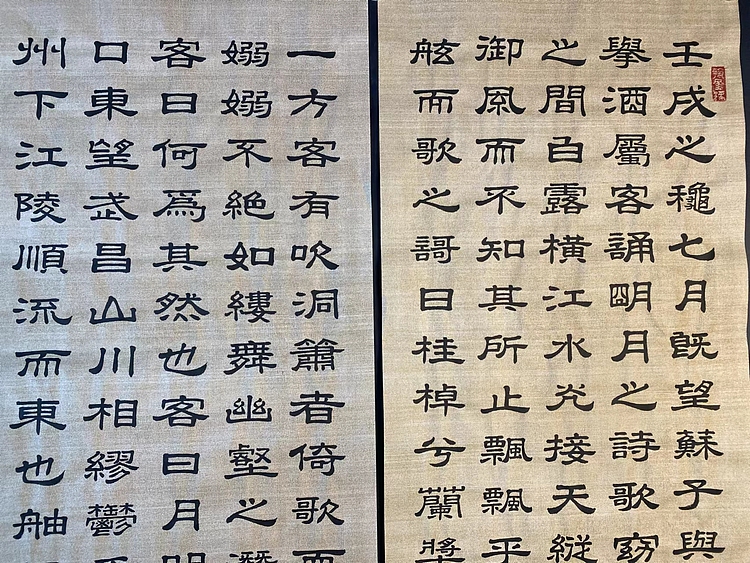 壬戌之龝七月既望蘇子與
舉酒屬客誦明月之詩歌窈
之間白露橫江水光接天縱
御風而不知其所止飄飄乎
舷而歌之謌曰桂棹兮蘭槳
一方客有吹洞簫者倚歌而
嫋嫋不絕如縷舞幽壑之潛
客曰何為其然也客曰月明
口東望武昌山川相繆鬱乎
州下江陵順流而東也舳